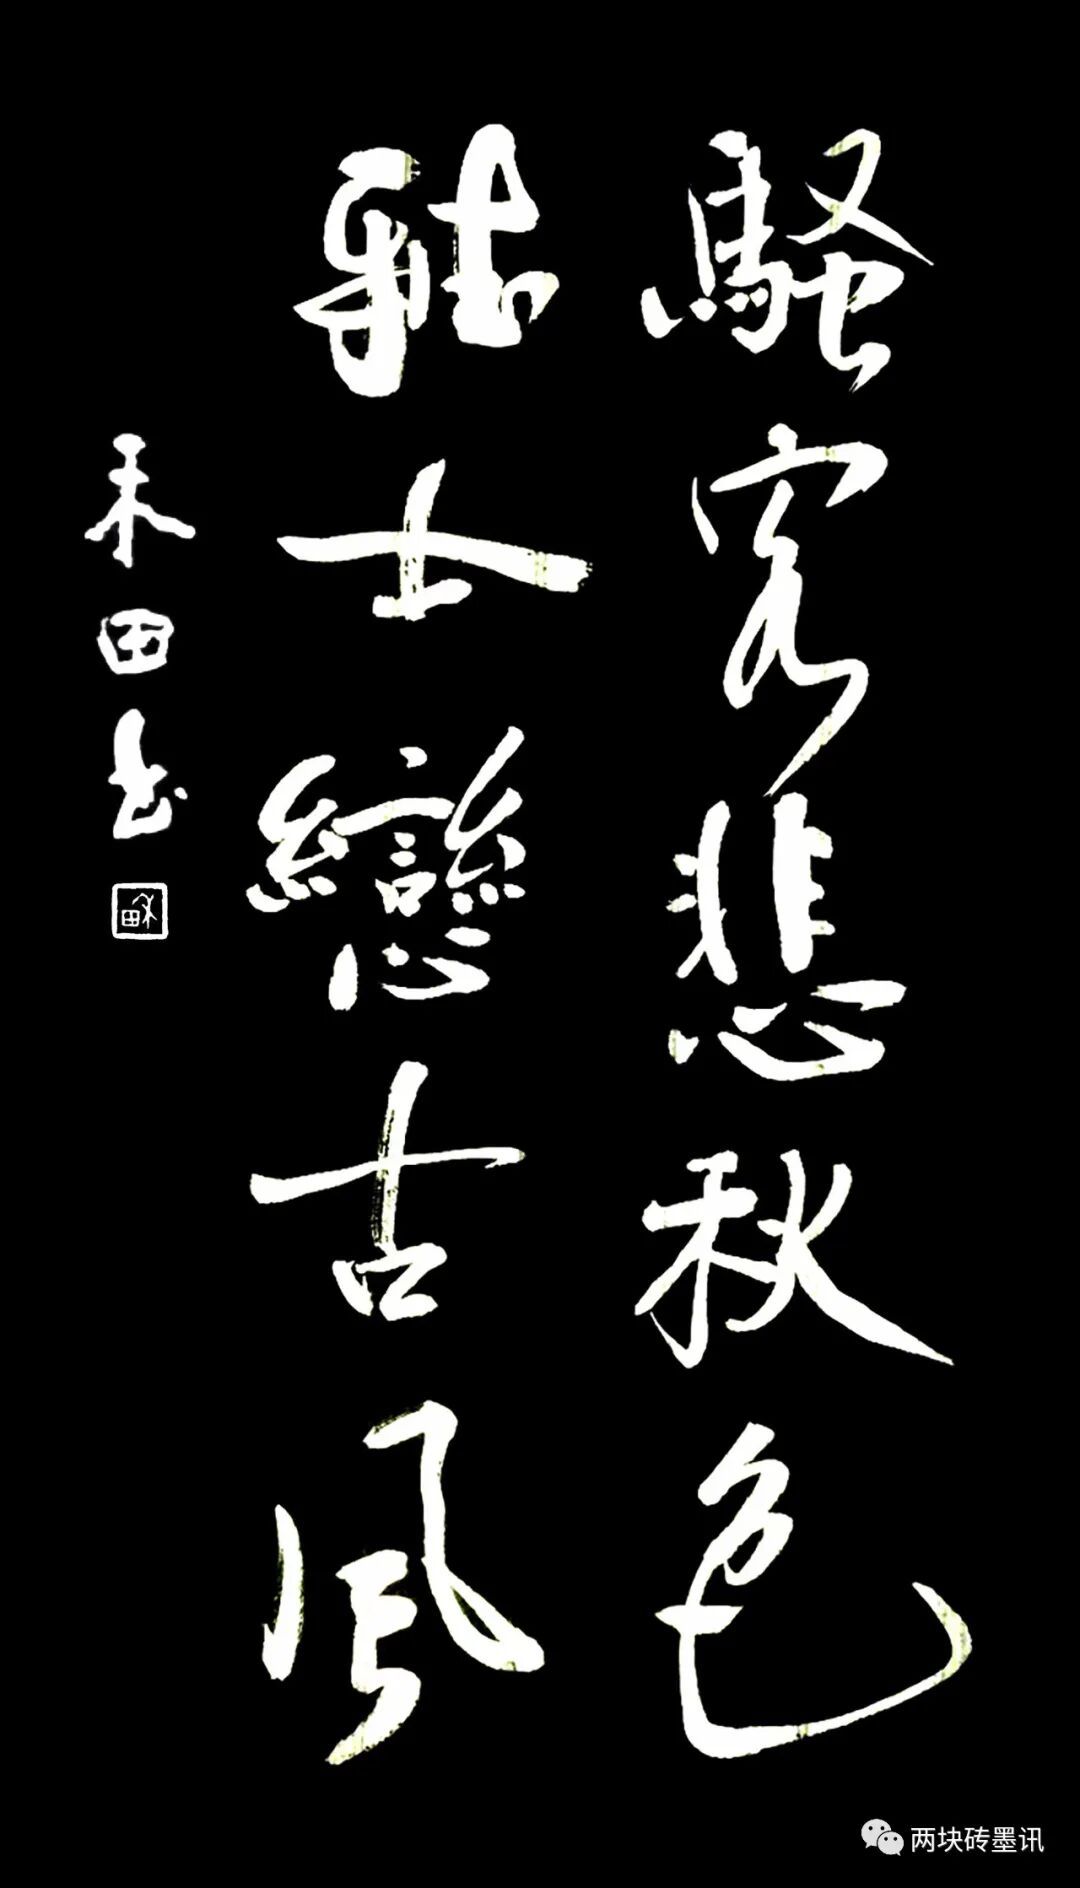 騷客悲秋色
雅士戀古風
禾田书
禾田
两块砖墨讯